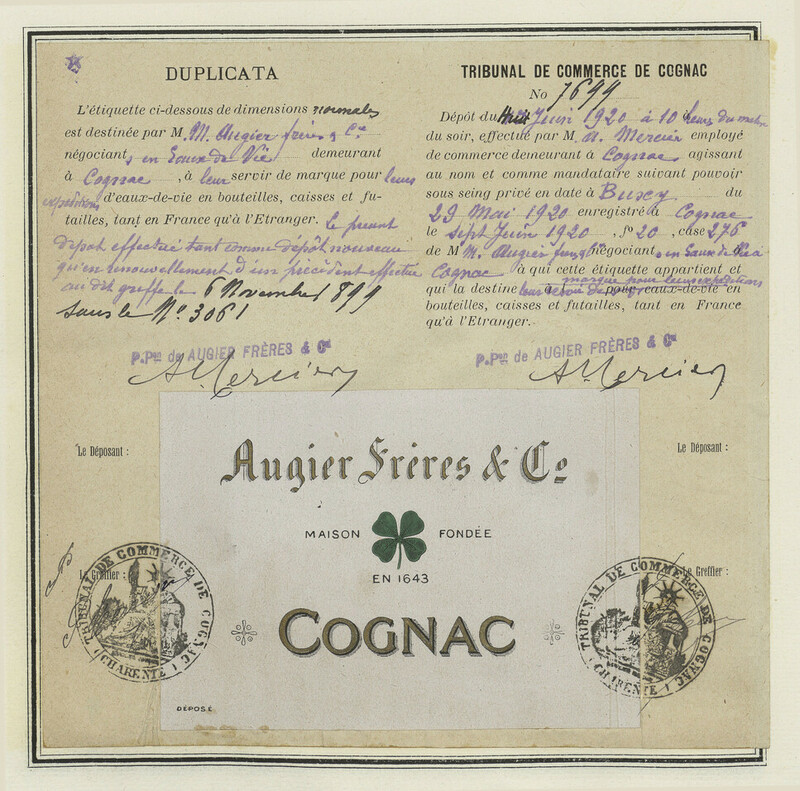 DUPLICATA
L'étiquette ci-dessous de dimensions normales
est destinée par M. M. Augier frères & Cie
négociants en Eaux de Vie demeurant
à Cognac, à leur servir de marque pour leurs
expéditions d'eaux-de-vie en bouteilles, caisses et fu-
tailles, tant en France qu'à l'Etranger. Le présent
dépôt effectué tant comme dépôt nouveau
qu'en renouvellement d'un précédent effectué
au dit greffe le 6 Novembre 1899
sous le No. 3061
P.Pon de AUGIER FRÈRES & Cie
A. Mercier
Le Déposant :
Le Greffier :
TRIBUNAL DE COMMERCE DE COGNAC
(CHARENTE)
TRIBUNAL DE COMMERCE DE COGNAC
No 7699
Dépôt du Huit Juin 1920 à 10 heures du matin
du soir, effectué par M. A. Mercier employé
de commerce demeurant à Cognac agissant
au nom et comme mandataire suivant pouvoir
sous seing privé en date à du
29 Mai 1920 enregistré à Cognac
le sept Juin 1920, fo 20, case 276
de M. M. Augier frères négociants en Eaux de Vie à
Cognac à qui cette étiquette appartient et
qui la destine à leur servir de marque pour leurs expéditions pour eaux-de-vie en
bouteilles, caisses et futailles, tant en France
qu'à l'Etranger.
P.Pon de AUGIER FRÈRES & Cie
A. Mercier
Le Déposant :
Le Greffier :
TRIBUNAL DE COMMERCE DE COGNAC
(CHARENTE)
Augier Frères & Co
MAISON FONDÉE
EN 1643
COGNAC
DÉPOSÉ